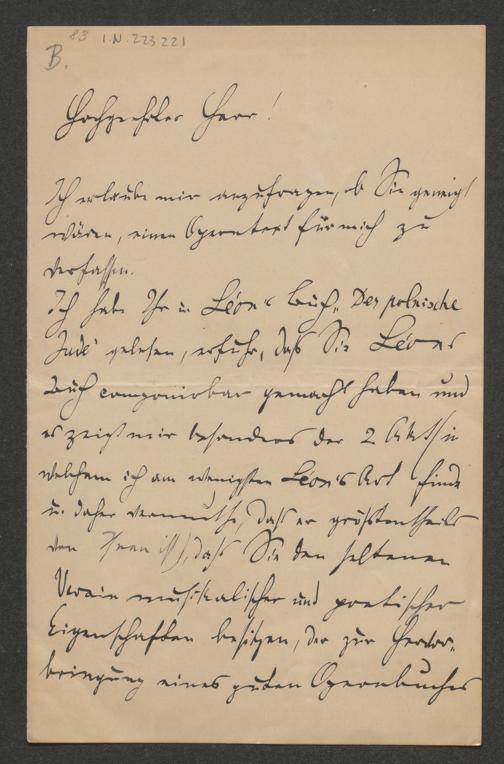 83 I.N. 223221
B.
Hochgeehrter Herr!
Ich erlaube mir anzufragen, ob Sie geneigt
wären, einen Operntext für mich zu
verfassen.
Ich habe Ihr u. Léon's Buch „Der polnische
Jude" gelesen, erfuhr, daß Sie Léons
Buch componirbar gemacht haben und
es zeigt mir besonders der 2. Akt (in
welchem ich am wenigsten Léon's Art finde
u. daher vermuthe, daß er größtentheils
von Ihnen ist), daß Sie den seltenen
Verein musikalischer und poetischer
Eigenschaften besitzen, der zur Hervor-
bringung eines guten Opernbuches